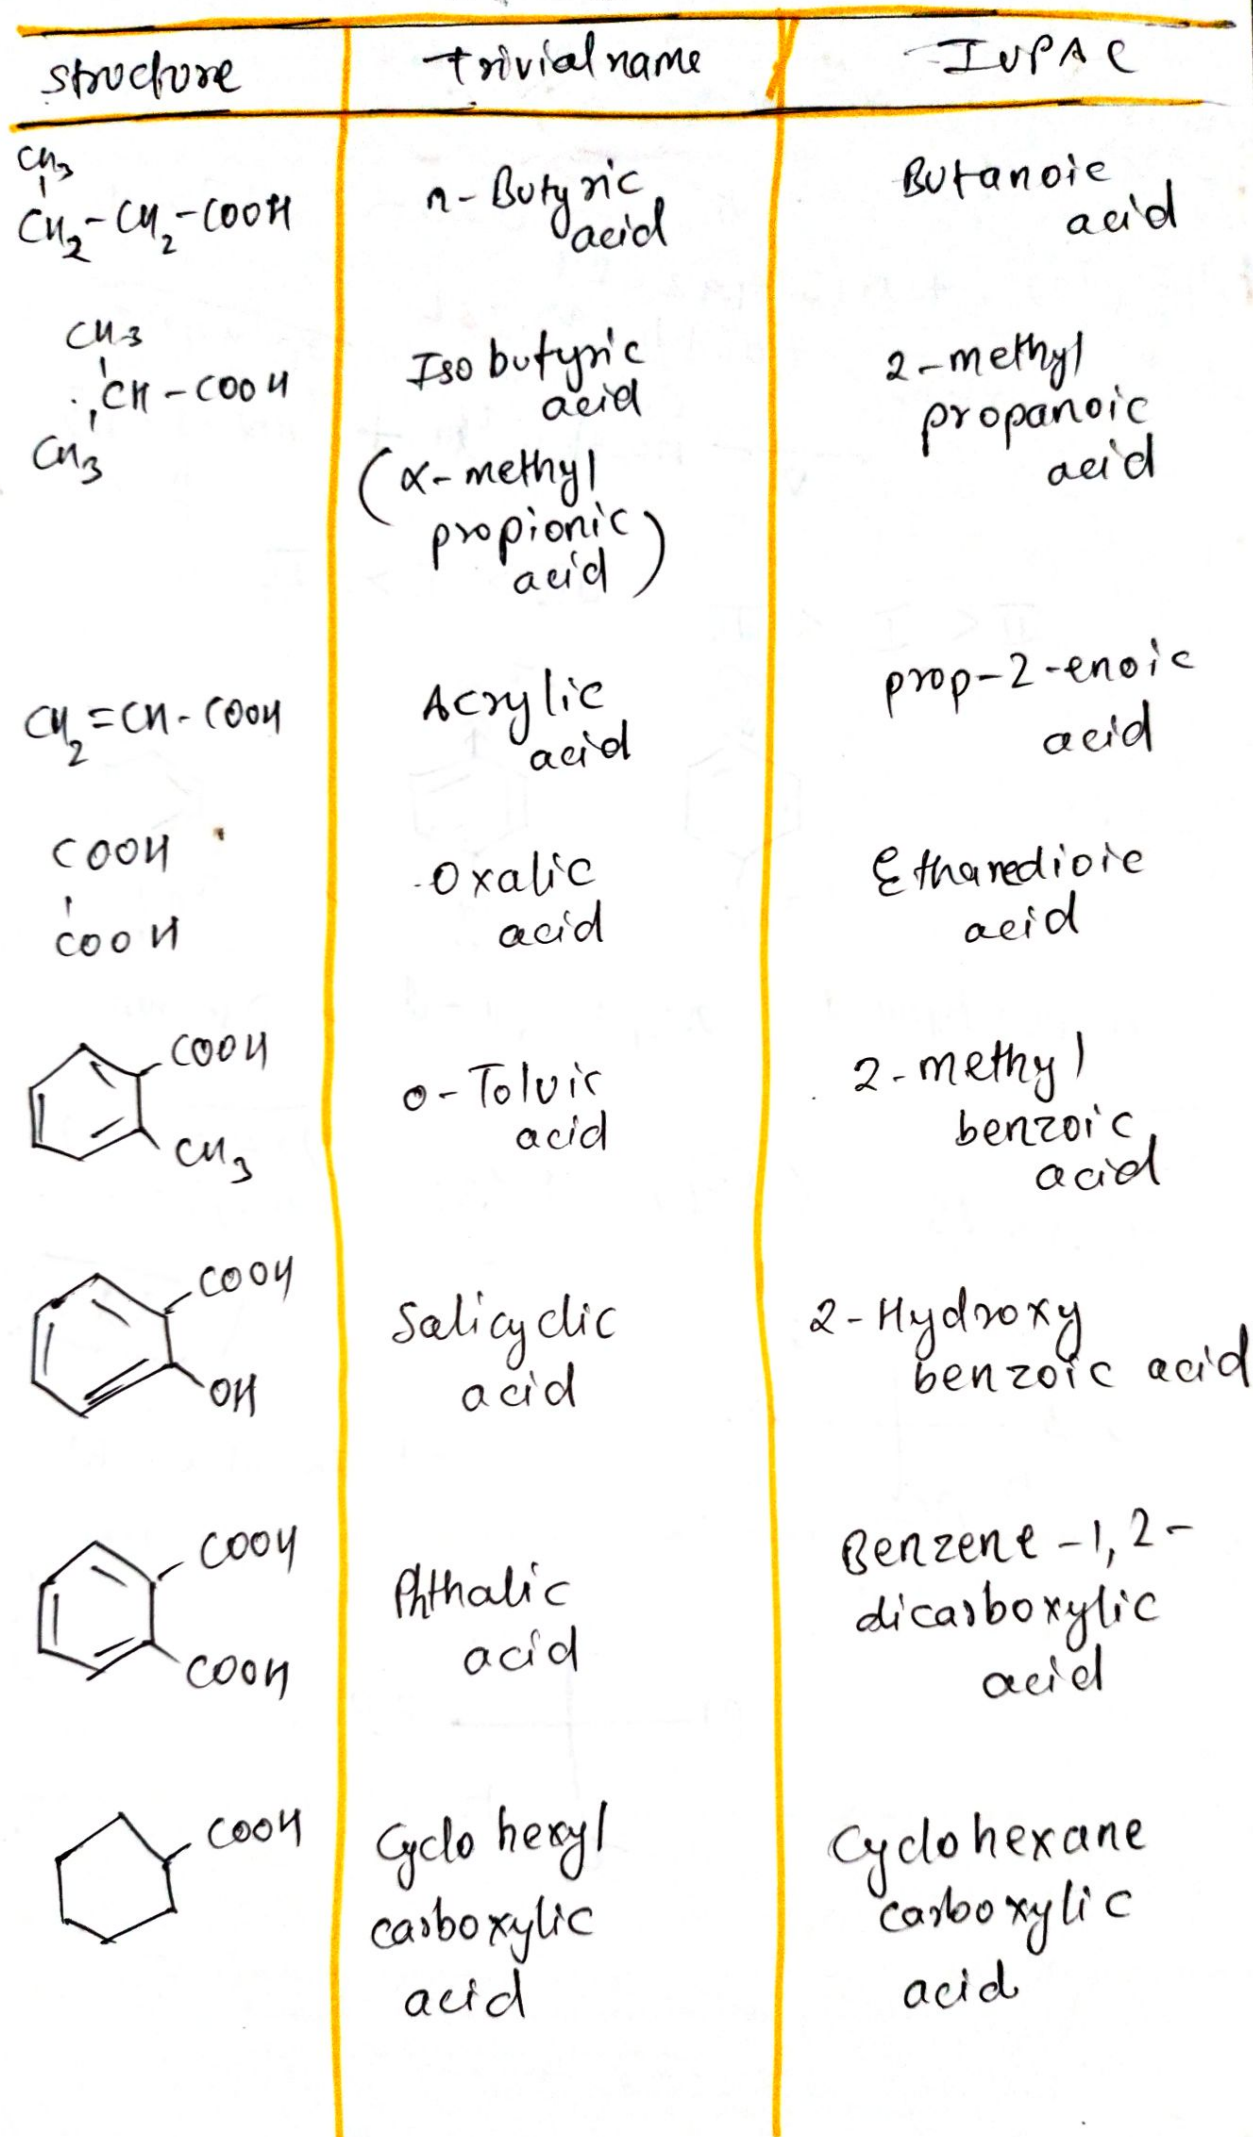 structure trivial name IUPAC
CH3
CH2-CH2-COOH n-Butyric acid Butanoic acid
CH3
CH-COOH
CH3
Isobutyric acid
(α-methyl propionic acid)
2-methyl propanoic acid
CH2=CH-COOH Acrylic acid prop-2-enoic acid
COOH
COOH
Oxalic acid
Ethanedioic acid
COOH
CH3
o-Toluic acid
2-methyl benzoic acid
COOH
OH
Salicyclic acid
2-Hydroxy benzoic acid
COOH
COOH
Phthalic acid
Benzene-1,2-dicarboxylic acid
COOH
Cyclo hexyl carboxylic acid
Cyclohexane carboxylic acid